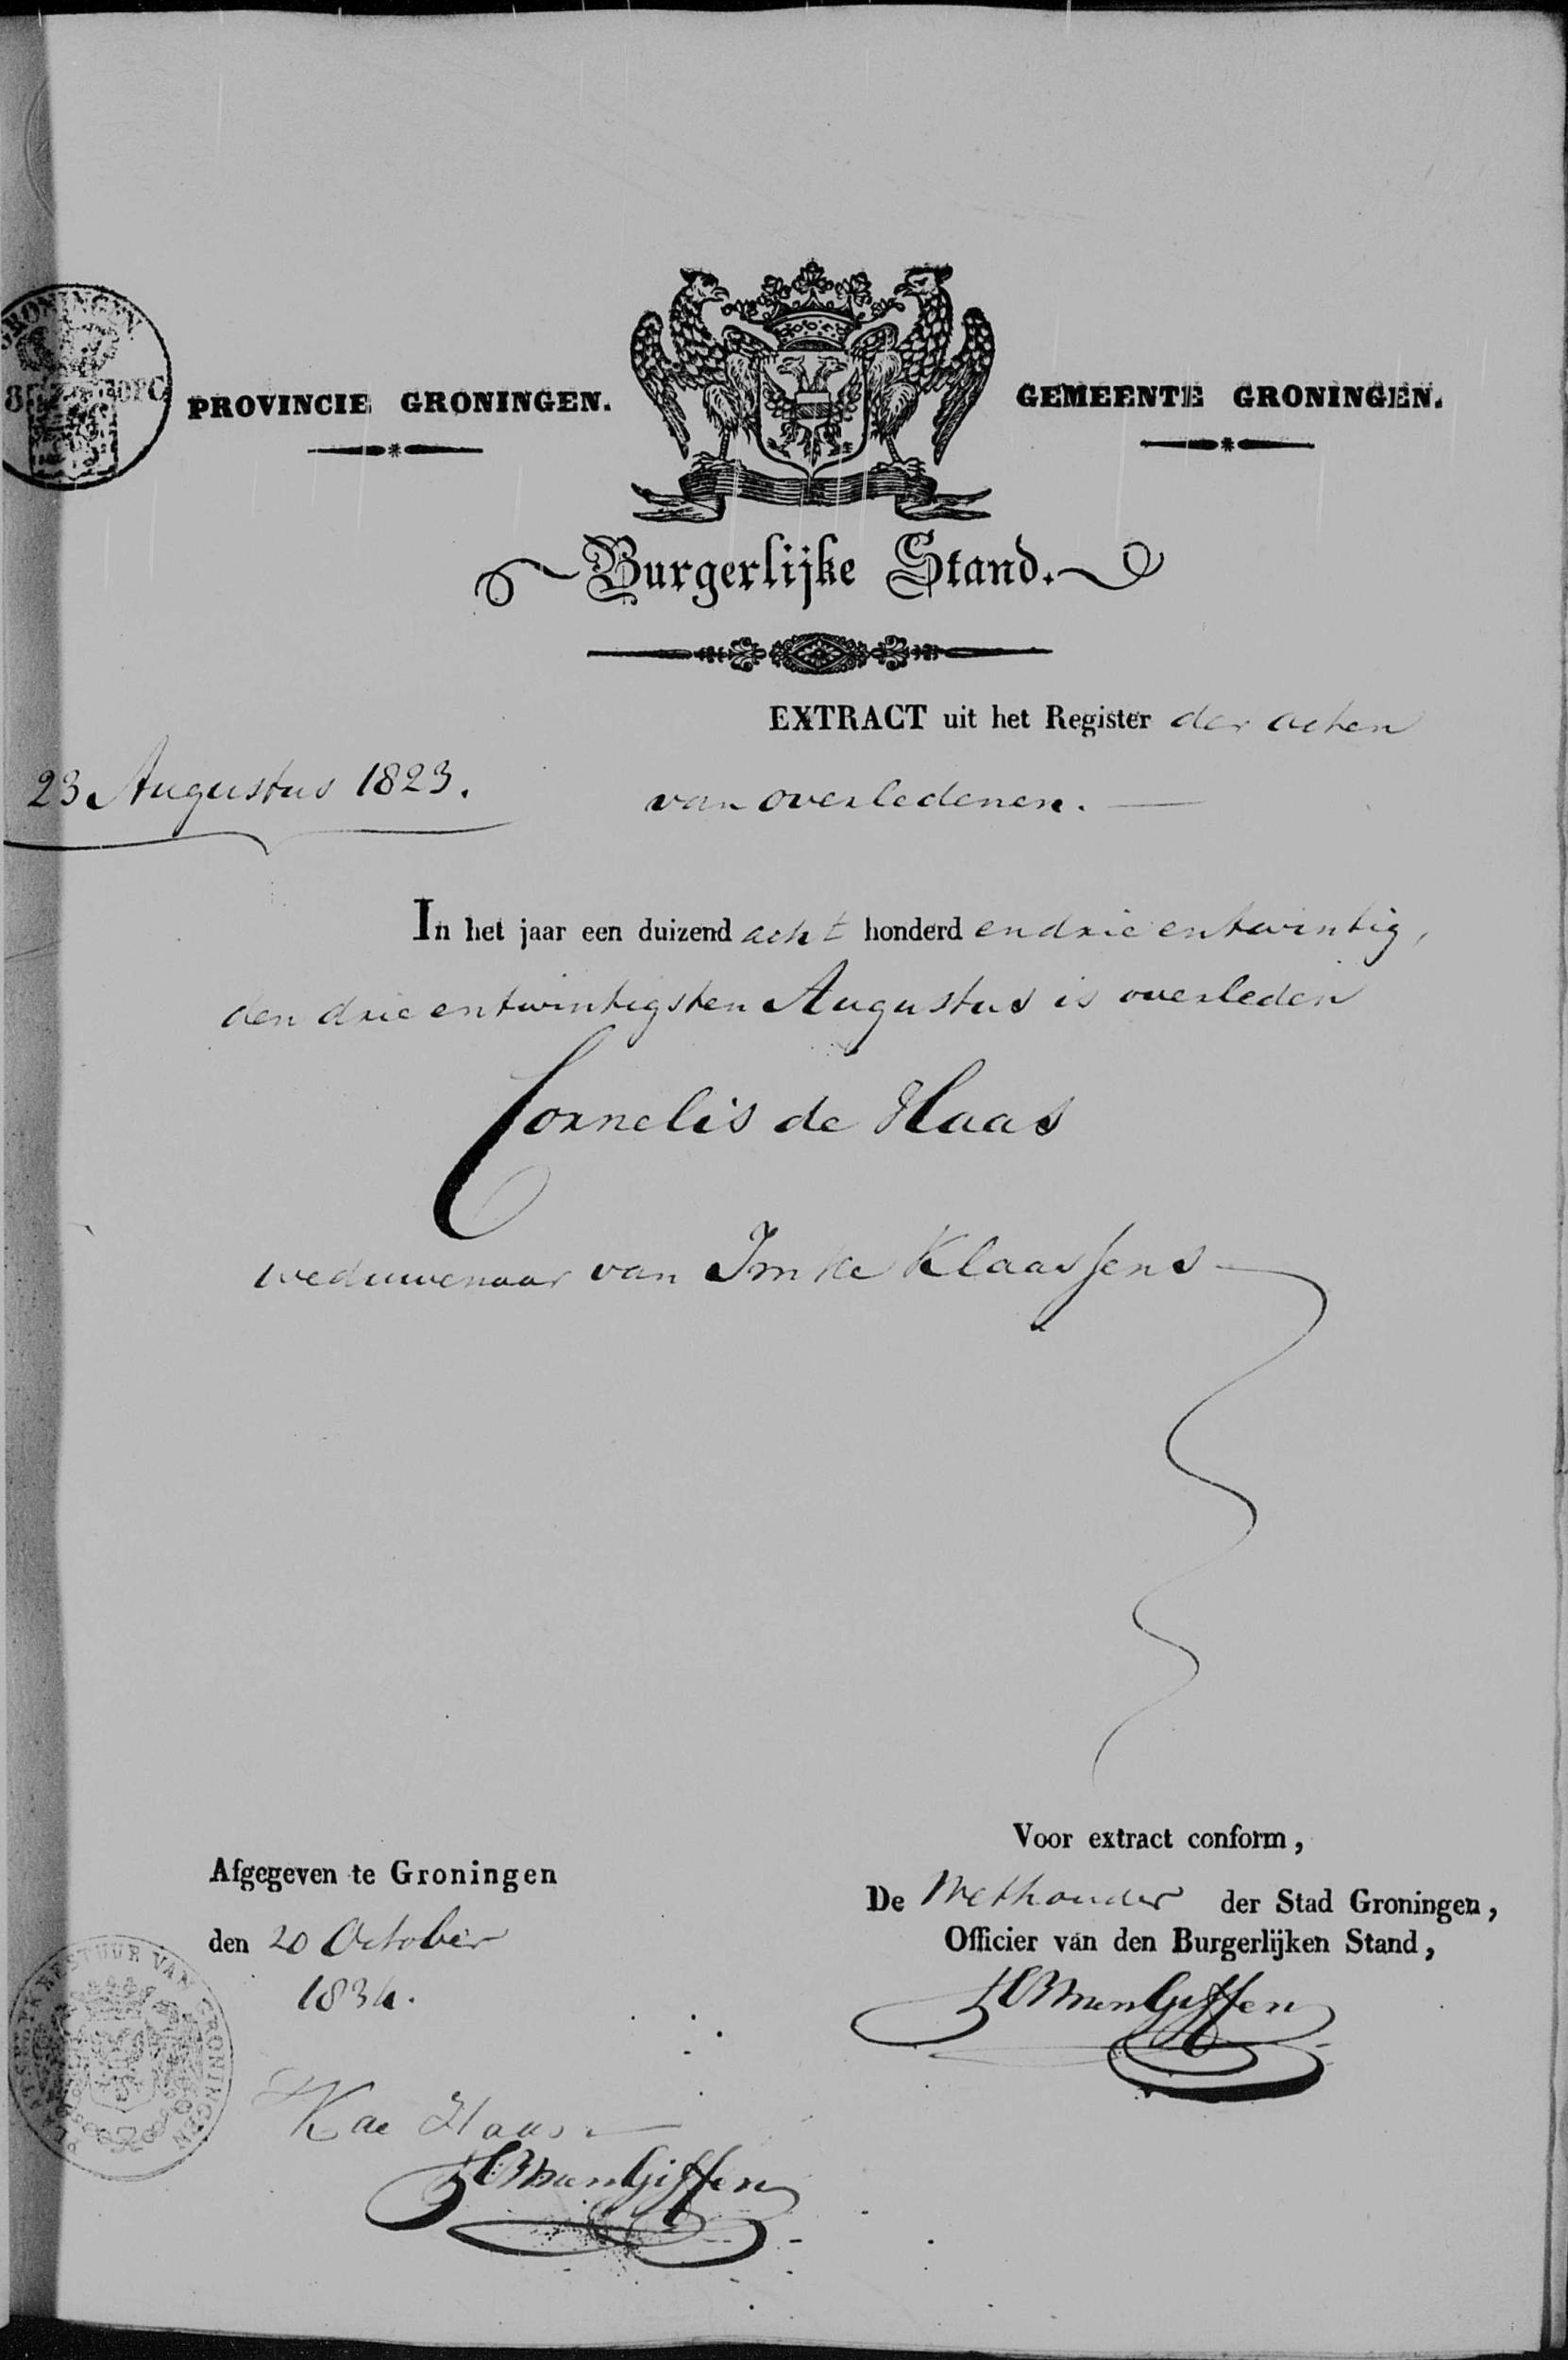 GRONINGEN
PROVINCIE GRONINGEN.
GEMEENTE GRONINGEN.
Burgerlijke Stand.
EXTRACT uit het Register der acten
23 Augustus 1823.
van overledenen.
In het jaar een duizend acht honderd en drie en twintig,
den drie en twintigsten Augustus is overleden
Cornelis de Haas
weduwenaar van Imke Klaassens
Voor extract conform,
Afgegeven te Groningen
De Wethouder der Stad Groningen,
den 20 October
Officier van den Burgerlijken Stand,
1834.
BESTUUR VAN GRONINGEN
K de Haas